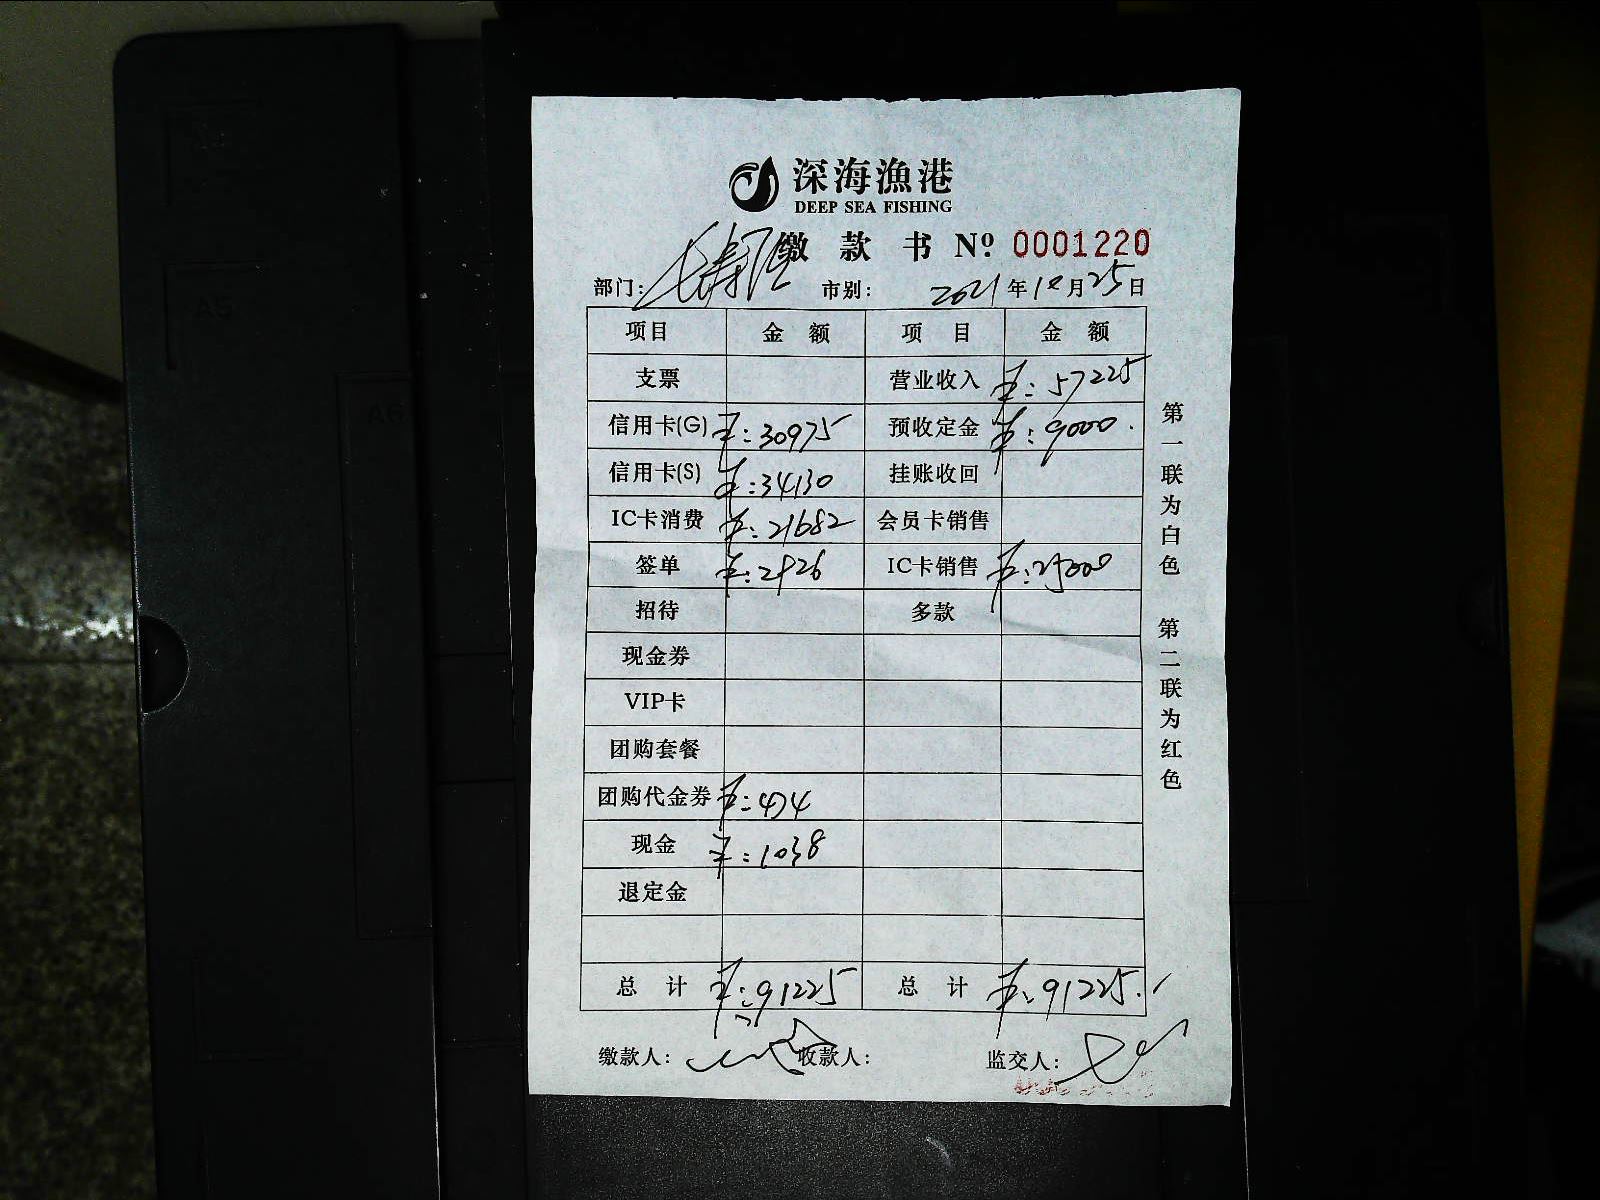 深海漁港
DEEP SEA FISHING
缴款书 Nº 0001220
部门: 市别: 2021年10月25日
项目 金额 项目 金额
支票 营业收入 ¥:57225
信用卡(G) ¥:30975 预收定金 ¥:9000.
信用卡(S) ¥:34130 挂账收回
IC卡消费 ¥:21682 会员卡销售
签单 ¥:2926 IC卡销售 ¥:25000
招待 多款
现金券
VIP卡
团购套餐
团购代金券 ¥:474
现金 ¥:1038
退定金
总计 ¥:91225 总计 ¥:91225.
缴款人: 收款人: 监交人:
第一联为白色 第二联为红色